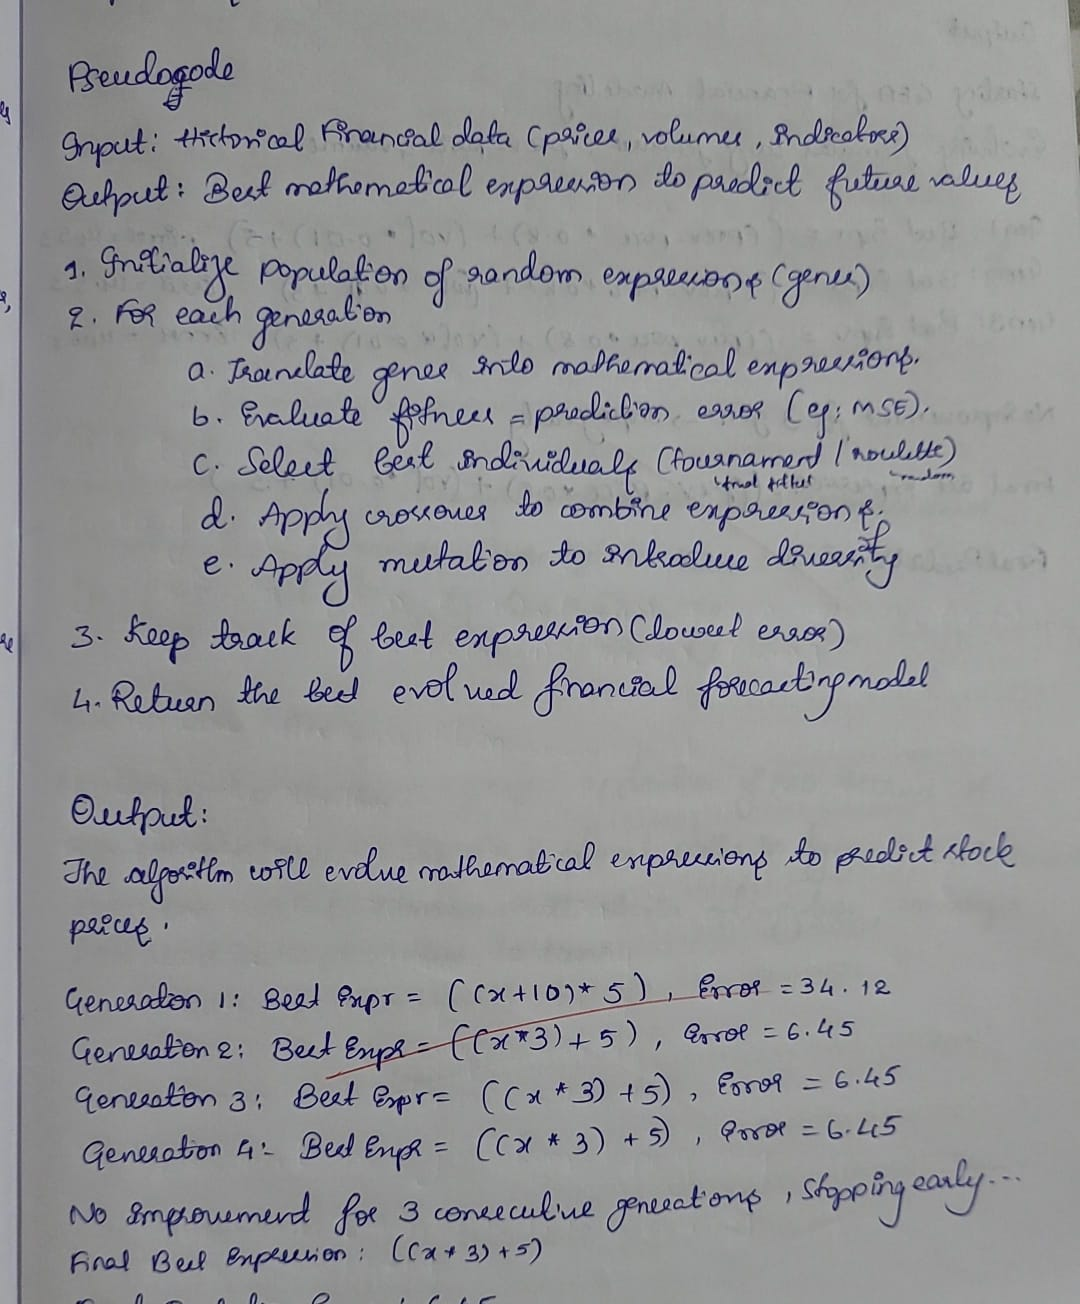 Pseudogode
Input: Historical Financial data (prices, volumes, indicators)
Output: Best mathematical expression to predict future values
1. Initialize population of random expressions (genes)
2. For each generation
a. Translate genes into mathematical expressions.
b. Evaluate fitness = prediction error (eg: MSE).
c. Select best individuals (tournament / roulette)
random
d. Apply crossover to combine expressions.
e. Apply mutation to introduce diversity
3. Keep track of best expression (lowest error)
4. Return the best evolved financial forecasting model
Output:
The algorithm will evolve mathematical expressions to predict stock
prices.
Generation 1: Best Expr = ((x+10)* 5), Error = 34.12
Generation 2: Best Expr = ((x*3)+5), Error = 6.45
Generation 3: Best Expr = ((x * 3) +5), Error = 6.45
Generation 4: Best Expr = ((x * 3) + 5), Error = 6.45
No improvement for 3 consecutive generations, stopping early...
Final Best Expression: ((x * 3) +5)